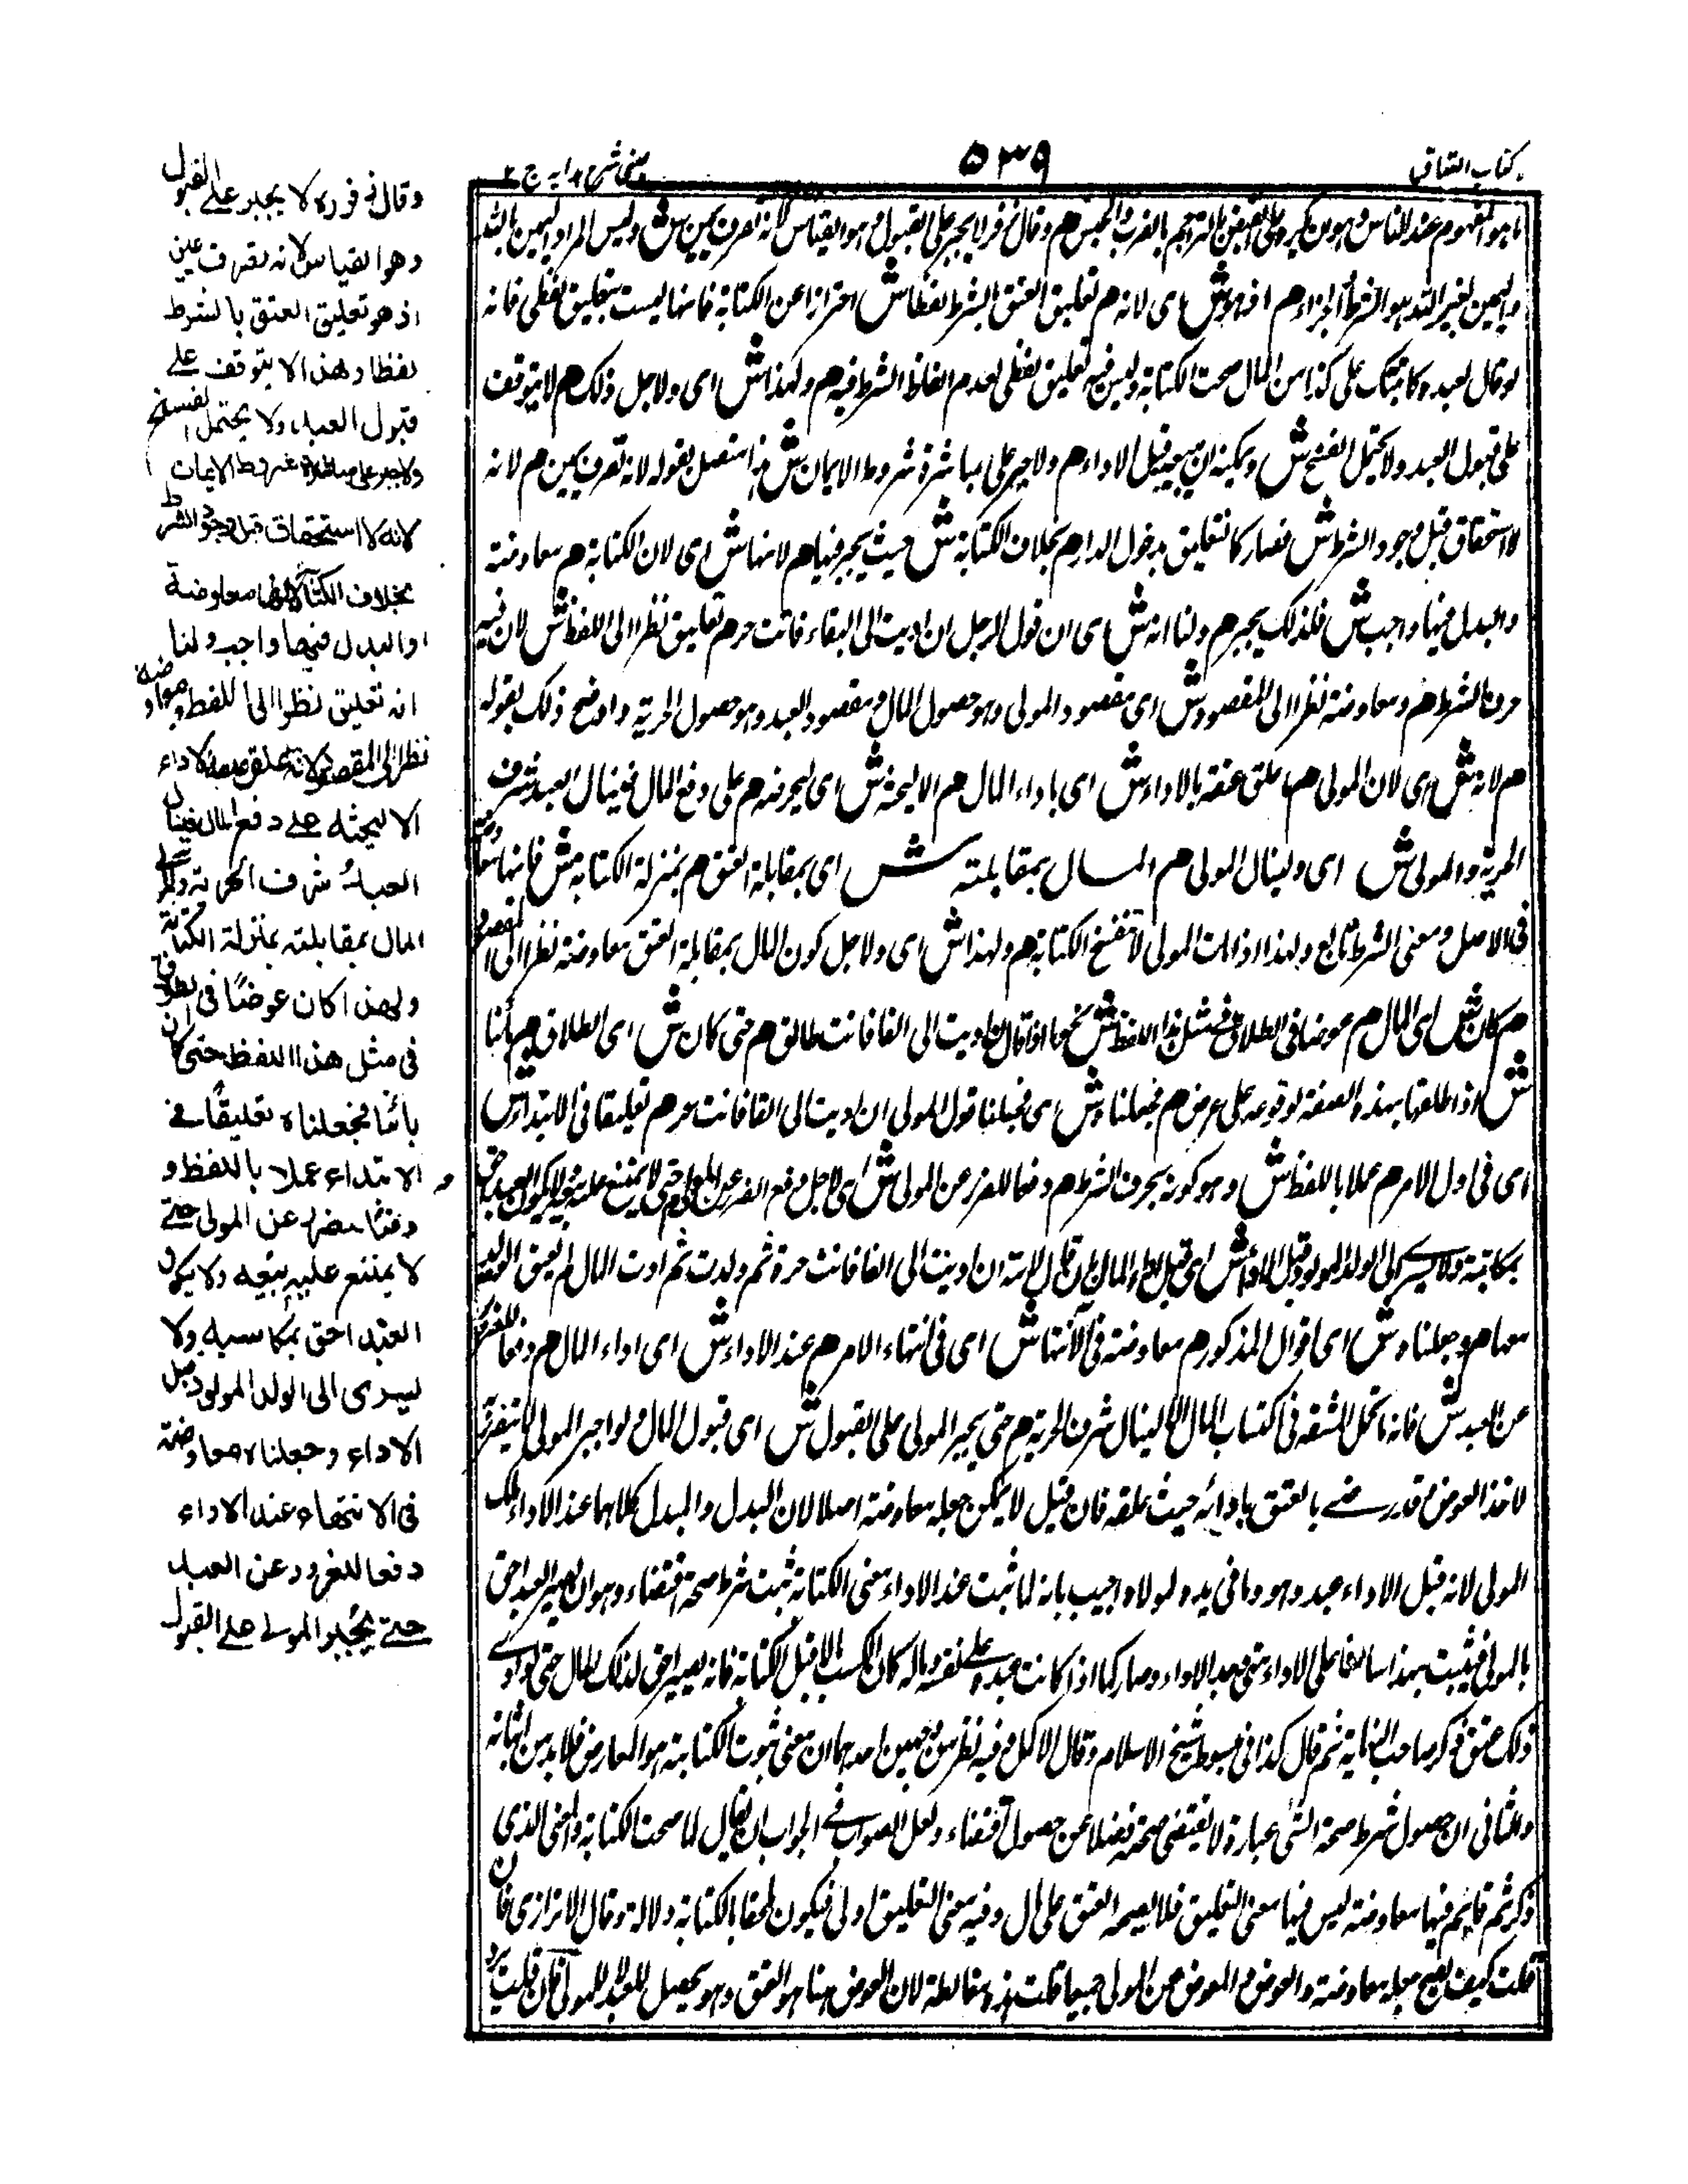 كتاب العتاق
٥٣٩
عينى شرح هدايه ج ٢
ما هو المفهوم عند الناس وهو ان يكره على القبض بالضرب والحبس هم وقال زفر لا يجبر على القبول وهو القياس لانه تصرف يمين ش وليس المراد اليمين بالله
واليمين بغير الله هو الشرط والجزاء هم اذ هو ش اى لانه هم تعليق العتق بالشرط لفظا ش احترازا عن الكتابة فانها ليست بتعليق لفظى فانه
لو قال لعبده كاتبتك على كذا من المال صحت الكتابة وليس فيه تعليق لفظى لعدم الفاظ الشرط فيه هم ولهذا ش اى ولاجل ذلك هم لا يتوقف
على قبول العبد ولا يحتمل الفسخ ش ويمكنه ان يبيعه قبل الاداء هم ولا جبر على مباشرة شروط الايمان ش هذا متصل بقوله لانه تصرف يمين هم لانه
لا استحقاق قبل وجود الشرط ش فصار كالتعليق بدخول الدار هم بخلاف الكتابة ش حيث يجبر فيها هم لانها ش اى لان الكتابة هم معاوضة
والبدل فيها واجب ش فلذلك يجبر هم ولنا انه ش اى ان قول الرجل ان اديت الى الفا فانت حر هم تعليق نظرا الى اللفظ ش لان فيه
حرف الشرط هم ومعاوضة نظرا الى المقصود ش اى مقصود المولى وهو حصول المال ومقصود العبد وهو حصول الحرية واوضح ذلك بقوله
هم لانه ش اى لان المولى هم ما علق عتقه بالاداء ش اى باداء المال هم الا ليحثه ش اى ليحرضه هم على دفع المال فينال العبد شرف
الحرية والمولى ش اى ولينال المولى هم المال بمقابلته ش اى بمقابلة العتق هم بمنزلة الكتابة ش فانها معاوضة
فى الاصل ومعنى الشرط تابع ولهذا اذا مات المولى لا تنفسخ الكتابة هم ولهذا ش اى ولاجل كون المال بمقابلة العتق معاوضة نظرا الى المقصود
هم كان ش اى المال هم عوضا فى الطلاق فى مثل هذا اللفظ ش نحو ما اذا قال ان اديت الى الفا فانت طالق هم حتى كان ش اى الطلاق هم بائنا
ش اذا طلقها بهذه الصفة لوقوعه على عوض هم فجعلناه ش اى فجعلنا قول المولى ان اديت الى الفا فانت حر هم تعليقا فى الابتداء ش
اى فى اول الامر هم عملا باللفظ ش وهو كونه بحرف الشرط هم ودفعا للضرر عن المولى ش اى لاجل دفع الضرر عن المولى هم حتى لا يمتنع عليه بيعه ولا يكون العبد احق
بمكاسبه ولا يسرى الى الولد المولود قبل الاداء ش اى قبل اداء المال بان قال لامته ان اديت الى الفا فانت حرة ثم ولدت ثم ادت المال لم يعتق الولد
معها هم وجعلناه ش اى القول المذكور هم معاوضة فى الانتهاء ش اى فى انتهاء الامر هم عند الاداء ش اى اداء المال هم دفعا للغرور
عن العبد ش فانه ما تحمل المشقة فى اكتساب المال الا لينال شرف الحرية هم حتى يجبر المولى على القبول ش اى قبول المال ولو اجبر المولى لا يتضرر
لاخذ العوض وقد رضى بالعتق بادائه حيث علقه فان قيل لا يمكن جعله معاوضة اصلا لان البدل والمبدل كلاهما عند الاداء ملك
المولى لانه قبل الاداء عبد وهو وما فى يده لمولاه اجيب بانه لما ثبت عند الاداء معنى الكتابة ثبت شرط صحته اقتضاء وهو ان يصير العبد احق
بالمولى فيثبت هذا سابقا على الاداء متى وجد الاداء وصار كما اذا كاتب عبده على نفسه وماله كان اكتسبه قبل الكتابة فانه يصير احق لذلك المال حتى لو ادى
ذلك عتق ذكره صاحب النهاية ثم قال كذا فى مبسوط شيخ الاسلام وقال الاكمل وفيه نظر من وجهين احدهما ان معنى ثبوت الكتابة هو المعارض فلا بد من اثباته
والثانى ان حصول شرط صحة الشى عبارة لا يقتضى صحته فضلا عن حصوله اقتضاء ولعل الصواب فى الجواب ان يقال لما صحت الكتابة والمعنى الذى
ذكر ثم قائم فيها معاوضة ليس فيها معنى التعليق فلان يصح العتق على مال وفيه معنى التعليق اولى فيكون ملحقا بالكتابة دلالة وقال الاترازى فان
قلت كيف يصح جعله معاوضة والعوض والمعوض من المولى جميعا قلت هذه مغالطة لان العوض هنا هو العتق وهو يحصل للعبد لا للمولى فان قلت
وقال زفر ره لا يجبر على القبول
وهو القياس لانه تصرف يمين
اذ هو تعليق العتق بالشرط
لفظا ولهذا لا يتوقف على
قبول العبد ولا يحتمل الفسخ
ولا جبر على مباشرة شروط الايمان
لانه لا استحقاق قبل وجود الشرط
بخلاف الكتابة لانها معاوضة
والبدل فيها واجب ولنا
انه تعليق نظرا الى اللفظ ومعاوضة
نظرا الى المقصود لانه ما علق عتقه بالاداء
الا ليحثه على دفع المال فينال
العبد شرف الحرية والمولى
المال بمقابلته بمنزلة الكتابة
ولهذا كان عوضًا فى الطلاق
فى مثل هذا اللفظ حتى كان
بائنًا فجعلناه تعليقًا فى
الابتداء عملا باللفظ و
دفعًا للضرر عن المولى حتى
لا يمتنع عليه بيعه ولا يكون
العبد احق بمكاسبه ولا
يسرى الى الولد المولود قبل
الاداء وجعلناه معاوضة
فى الانتهاء عند الاداء
دفعا للغرور عن العبد
حتى يُجبر المولى على القبول